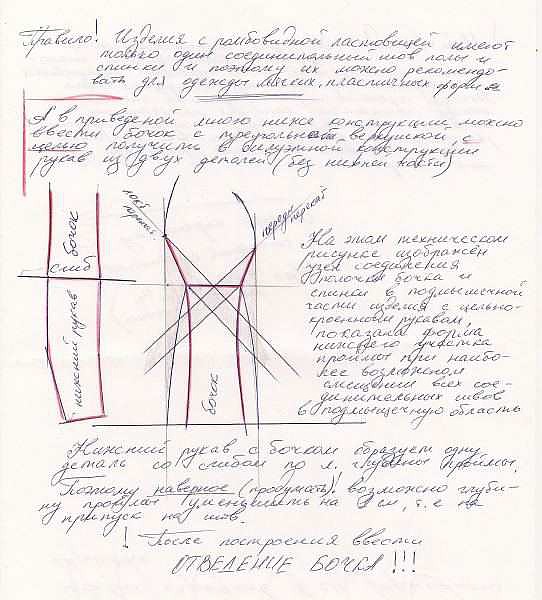 Правило! Изделия с ромбовидной ластовицей имеют
только один соединительный шов полы и
спинки и поэтому их можно рекомендо-
вать для одежды мягких, пластичных форм
А в приведеной мною ниже конструкции можно
ввести бочок с треугольной верхушкой, с
целью получить в визуэтной конструкции
рукав из двух деталей (без нижней части)
бочок
сгиб
нижний рукав
перекат
передн перекат
бочок
На этом техническом
рисунке изображён
узел соединения
полочки бочка и
спинки в подмышечной
части изделия с цельно-
кроенным рукавом,
показана форма
нижнего участка
проймы при наибо-
лее возможном
смещении всех сое-
динительных швов
в подмышечную область
Нижний рукав с бочком образует одну
деталь со сгибом по л. глубины проймы.
Поэтому наверное (продумать)! возможно глуби-
ну проймы уменьшить на см, т.е на
припуск на шов.
! После построения ввести
ОТВЕДЕНИЕ БОЧКА!!!